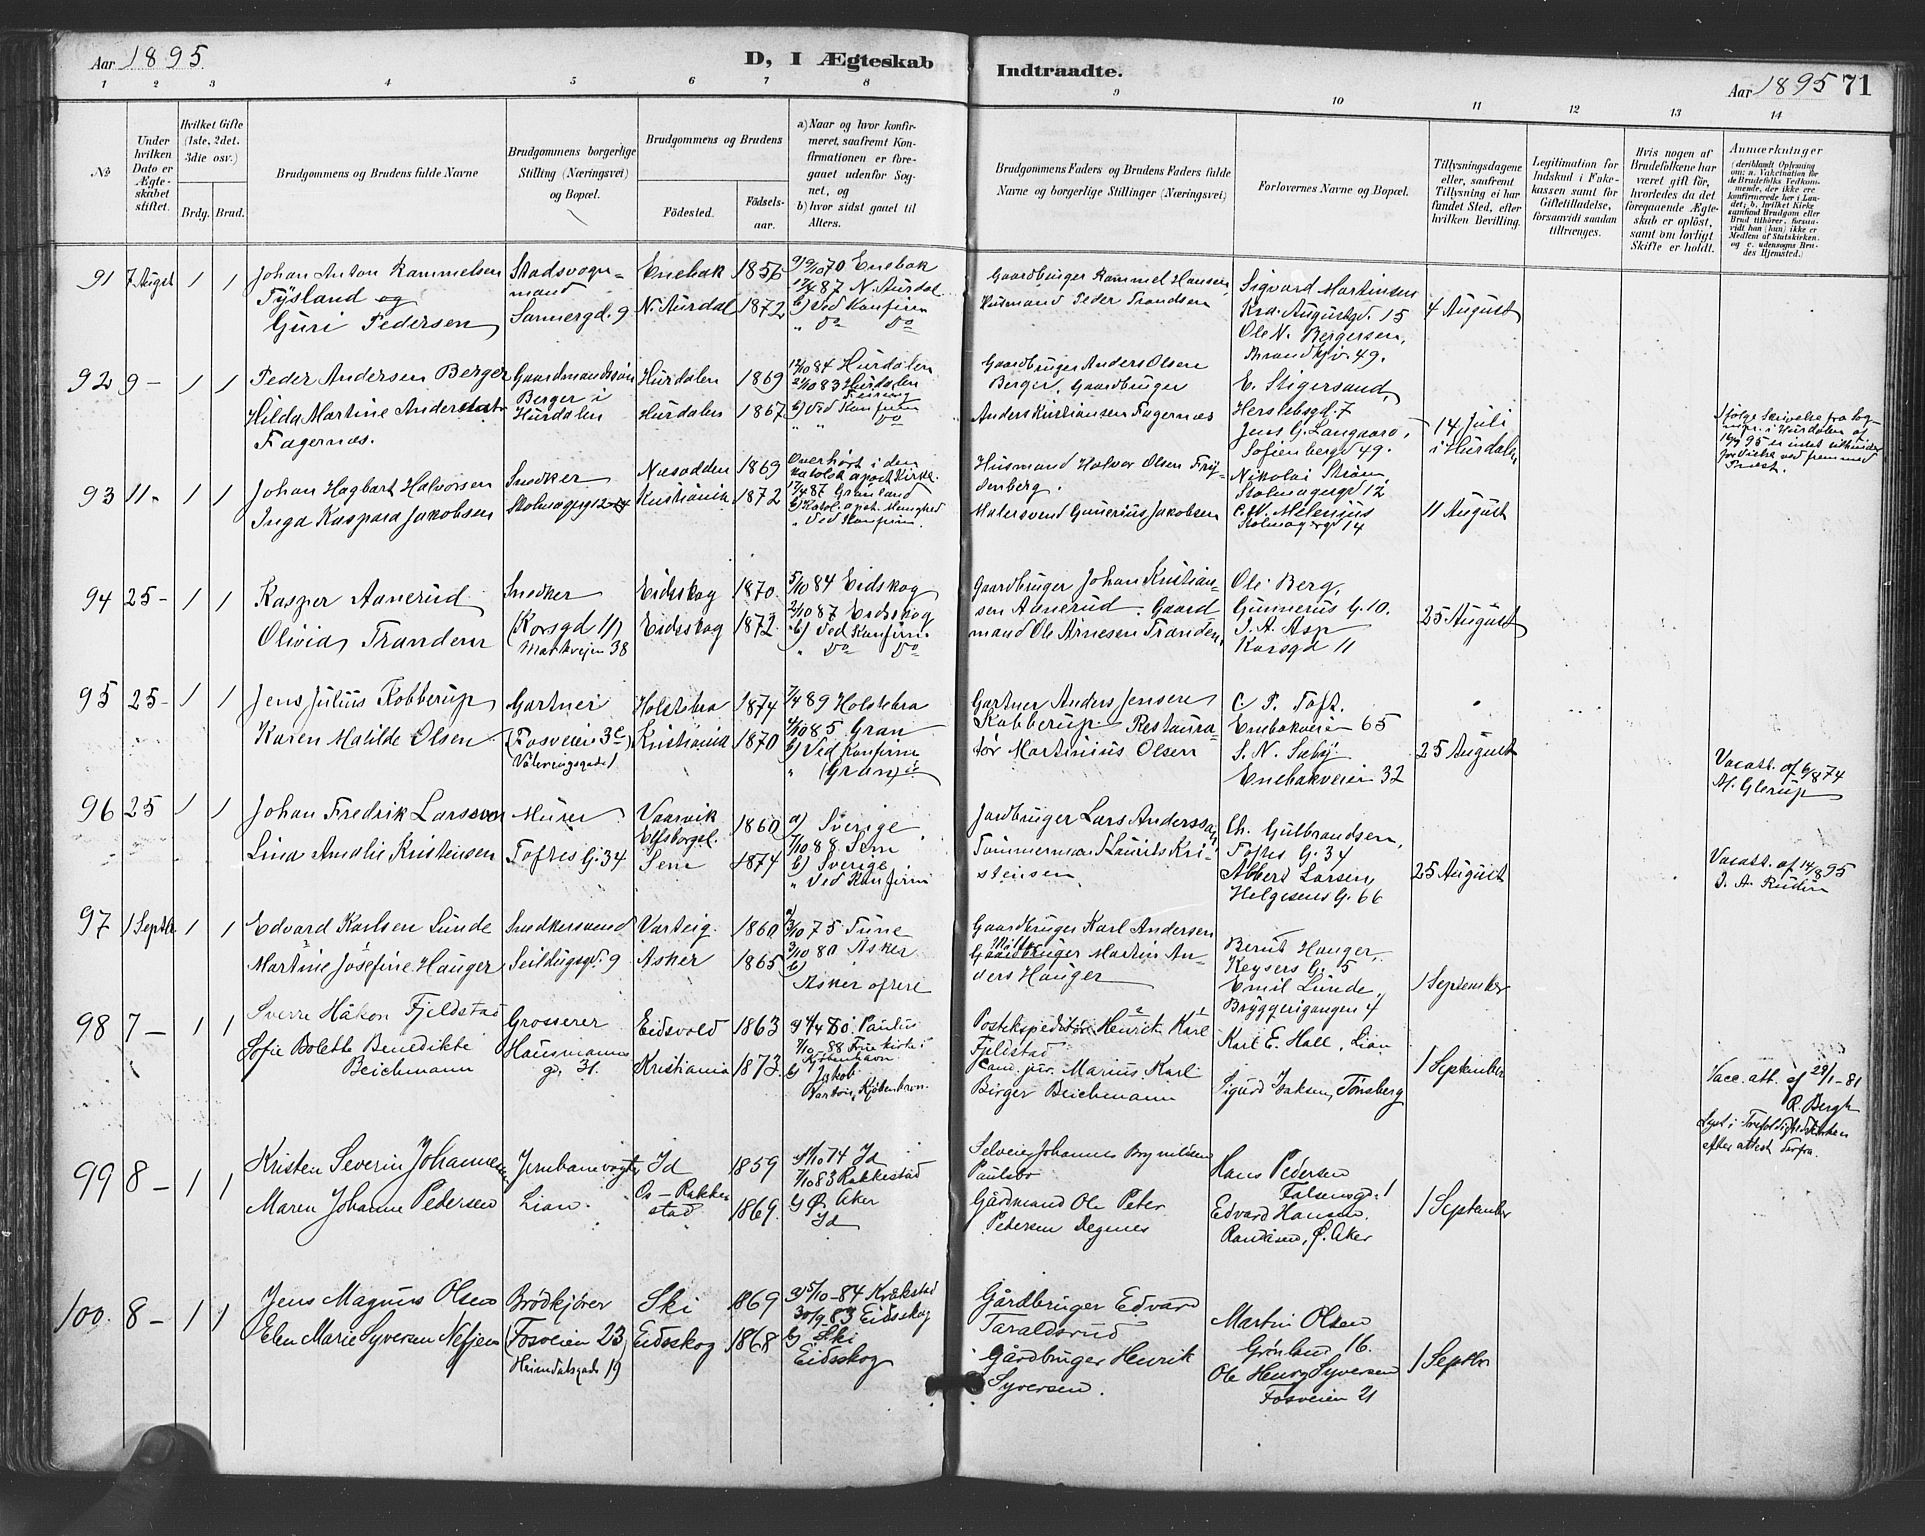 Aar 1895
D, I Ægteskab
Indtraadte.
Aar 1895 71
1 2 3 4 5 6 7 8 9 10 11 12 13 14
No
Under hvilken Dato er Ægteskabet stiftet.
Hvilket Gifte (1ste, 2det, 3die osv.)
Brdg. Brud.
Brudgommens og Brudens fulde Navne
Brudgommens borgerlige Stilling (Næringsvei) og Bopæl.
Brudgommens og Brudens
Födested.
Födsels-aar.
a) Naar og hvor konfirmeret, saafremt Konfirmationen er foregaaet udenfor Sognet, og
b) hvor sidst gaaet til Alters.
Brudgommens Faders og Brudens Faders fulde Navne og borgerlige Stillinger (Næringsvei)
Forlovernes Navne og Bopæl.
Tillysningsdagene eller, saafremt Tillysning ei har fundet Sted, efter hvilken Bevilling.
Legitimation for Indskud i Enkekassen samt for Giftetilladelse, forsaavidt saadan tiltrænges.
Hvis nogen af Brudefolkene har været gift för, hvorledes da det foregaaende Ægteskab er oplöst, samt om lovligt Skifte er holdt.
Anmærkninger
(deriblandt Oplysning om: a. Vakcination for de Brudefolks Vedkommende, der ikke ere konfirmerede her i Landet; b. hvilket Kirkesamfund Brudgom eller Brud tilhörer, forsaavidt han (hun) ikke er Medlem af Statskirken, og c. udensogns Brudes Hjemsted.)
91 7 Augst 1 1
Johan Anton Rammelsen
Tysland og
Guri Pedersen
Stadsvognmand
Sannergd. 9
Enebak 1856
N. Aurdal 1872
a) 9/10 70 Enebak
17/4 87 N. Aurdal
b) Ved Konfirm
" Do Do
Gaardbruger Rammel Hansen,
Husmand Peder Trondsen
Sigvard Martinsen
Kra. Augustgd. 15
Ole N. Bergersen,
4 August
92 9 - 1 1
Peder Andersen Berger
Hilda Martine Andersdatr
Fagernæs.
Gaardmandssön
Berger i
Hurdalen
Hurdalen 1869
Hurdalen 1867
12/10 84 Hurdalen
21/10 83 Hurdalen
Feiring
b) Ved Konfirm
" " Do
Gaardbruger Anders Olsen
Berger, Gaardbruger
Anders Kristiansen Fagernæs
E. Stigersand,
Herslebsgd. 7
Jens G. Langaard,
Sofienbergd 49.
14 Juli
i Hurdalen
93 11 - 1 1
Johan Hagbart Halvorsen
Inga Kaspara Jakobsen
Snedker
Nesodden 1869
Kristiania 1872
Overhört i den
katolsk apost. Kirke.
17/4 87 Grönland
b) Katol. apost. Menighed
" Ved Konfirm.
Husmand Halvor Olsen Frydenberg.
Malersvend Gunerius Jakobsen
Nikolai Ström,
Stolmagergd 12
Stolmagergd 14
11 August
94 25 - 1 1
Kasper Aanerud
Olivia Tranderr
Snedker
(Korsgd 11)
Markveien 38
Eidskog 1870.
Eidskog 1872.
5/10 84 Eidskog
2/10 87 Eidskog
b) Ved Konfirm.
" Do Do
Gaardbruger Johan Kristiansen Aanerud. Gaardmand Ole Arnesen Tranden,
Ole Berg,
Gunnerus G. 10.
J. A. Asp
Korsgd 11
25 August
95 25 - 1 1
Jens Julius Kobberup
Karen Matilde Olsen
Gartner
(Fosveien 3c)
Valeringsgade 1
Holstebro 1874
Kristiania 1870
7/4 89 Holstebro
4/10 85 Gran
b) Ved Konfirm
" (Gran) do
Gartner Anders Jensen
Kobberup. Restauratör Martinius Olsen
C. P. Toft.
Enebakveien 65
S. N. Sæby
Enebakveien 32
25 August
Vacatt. af 6/8 74
M. Glerup
96 25 1 1
Johan Fredrik Larsson
Lina Amalie Kristensen
Murer
Toftes G. 34
Vaarvik
Elfsborgsl. 1860
Sem 1874
a) Sverige
7/10 88 Sem
b) Sverige
" Ved Konfirm
Jordbruger Lars Andersson,
Tömmermand Laurits Kristensen
Ch. Gulbrandsen,
Toftes G. 34
Albert Larsen,
Helgesens G. 66
25 August
Vacatt. af 14/8 95
J. A. Rudin
97 1 Septbr 1 1
Edvard Karlsen Lunde
Martine Josefine Hauger
Snedkersvend
Seildugsgd. 9
Varteig. 1860
Asker 1865
a) 3/10 75 Tune
3/10 80 Asker
b)
Asker ofrere
Gaardbruger Karl Andersen
Gaardbruger Martin Anders Hauger
Bernt Hauger,
Keysers G. 5
Emil Lunde,
Bryggerigangen 4
1 September
98 7 - 1 1
Sverre Håkon Fjeldstad
Sofie Bolette Benedikte
Beichmann
Grosserer
Hausmanns
gd. 31.
Eidsvold 1863
Kristiania 1873.
a) 4/4 80. Paulus
7/10-88 Frue kirke i
København
b) Jakob
Vartov, København.
Postekspeditör Henrik Karl
Fjeldstad
Cand. jur. Marius Karl
Birger Beichmann
Karl E. Hall, Lian
Sigurd Isaksen, Tønsberg
1 September
Vacc. att. af 29/1-81
R. Bergh
Lyst i Trefoldighedskirken
efter attest derfra.
99 8 - 1 1
Kristen Severin Johannesen
Maren Johanne Pedersen
Jernbanevogter
Lian.
Id 1859
Os-Rakkestad 1869.
11/10 74 Id
7/10 83 Rakkestad
b) Ø. Aker
Id
Selveier Johannes Brynildsen
Paulsbo
Gårdmand Ole Peter
Pedersen Degnes
Hans Pedersen
Falsensgd. 1
Edvard Hansen.
Randåsen, Ø. Aker
1 September
100. 8 - 1 1
Jens Magnus Olsen
Elen Marie Syversen Nefjen
Brödkjörer
(Fosveien 23)
Heimdalsgade 19
Ski 1869
Eidsskog 1868
a) 5/10-84 Kråkstad
30/9-83 Eidsskog
b) Ski
Eidsskog
Gårdbruger Edvard
Taraldsrud
Gårdbruger Henrik
Syversen.
Martin Olsen
Grønland 16.
Ole Henry Syversen
Fosveien 21
1 Septbr